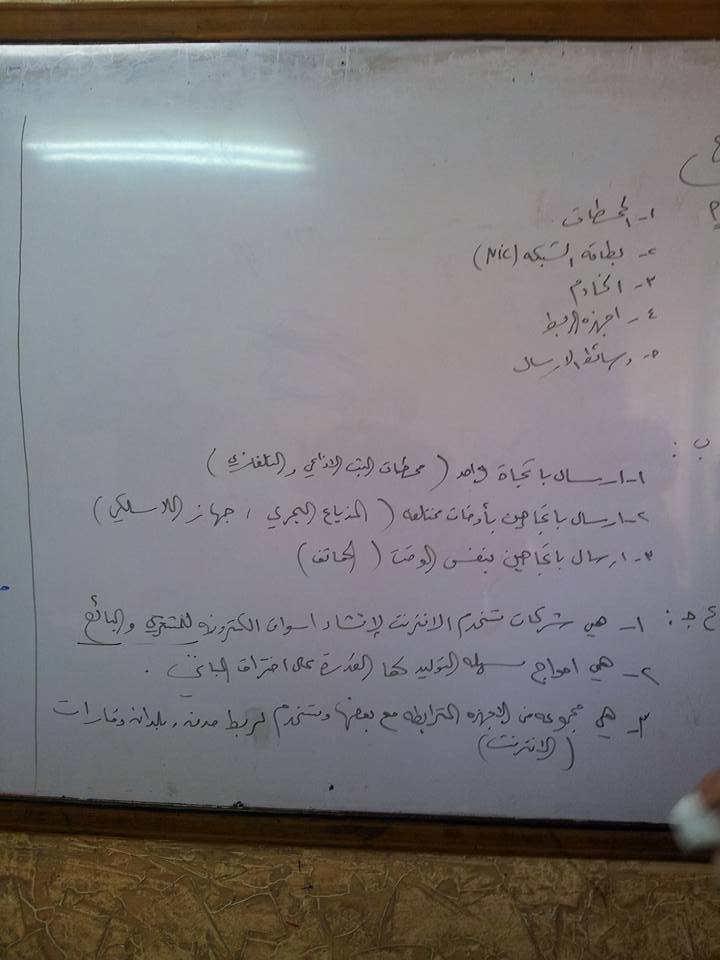 ١- المحطات
٢- بطاقة الشبكه (NIC)
٣- الخادم
٤- اجهزه الربط
٥- وسائط الارسال
ب :
١- ارسال باتجاة واحد ( محطات البث الاذاعي والتلفازي )
٢- ارسال باتجاهين بأوقات مختلفه ( المذياع البحري ، جهاز اللاسلكي )
٣- ارسال باتجاهين بنفس الوقت ( الهاتف )
ع ج : ١- هي شركات تستخدم الانترنت لإنشاء اسواق الكترونيه للمشتري والبائع
٢- هي امواج سهله التوليد لها القدرة على اختراق المباني .
٣- هي مجموعه من الاجهزه المترابطه مع بعضها وتستخدم لربط مدن وبلدان وقارات
( الانترنت )